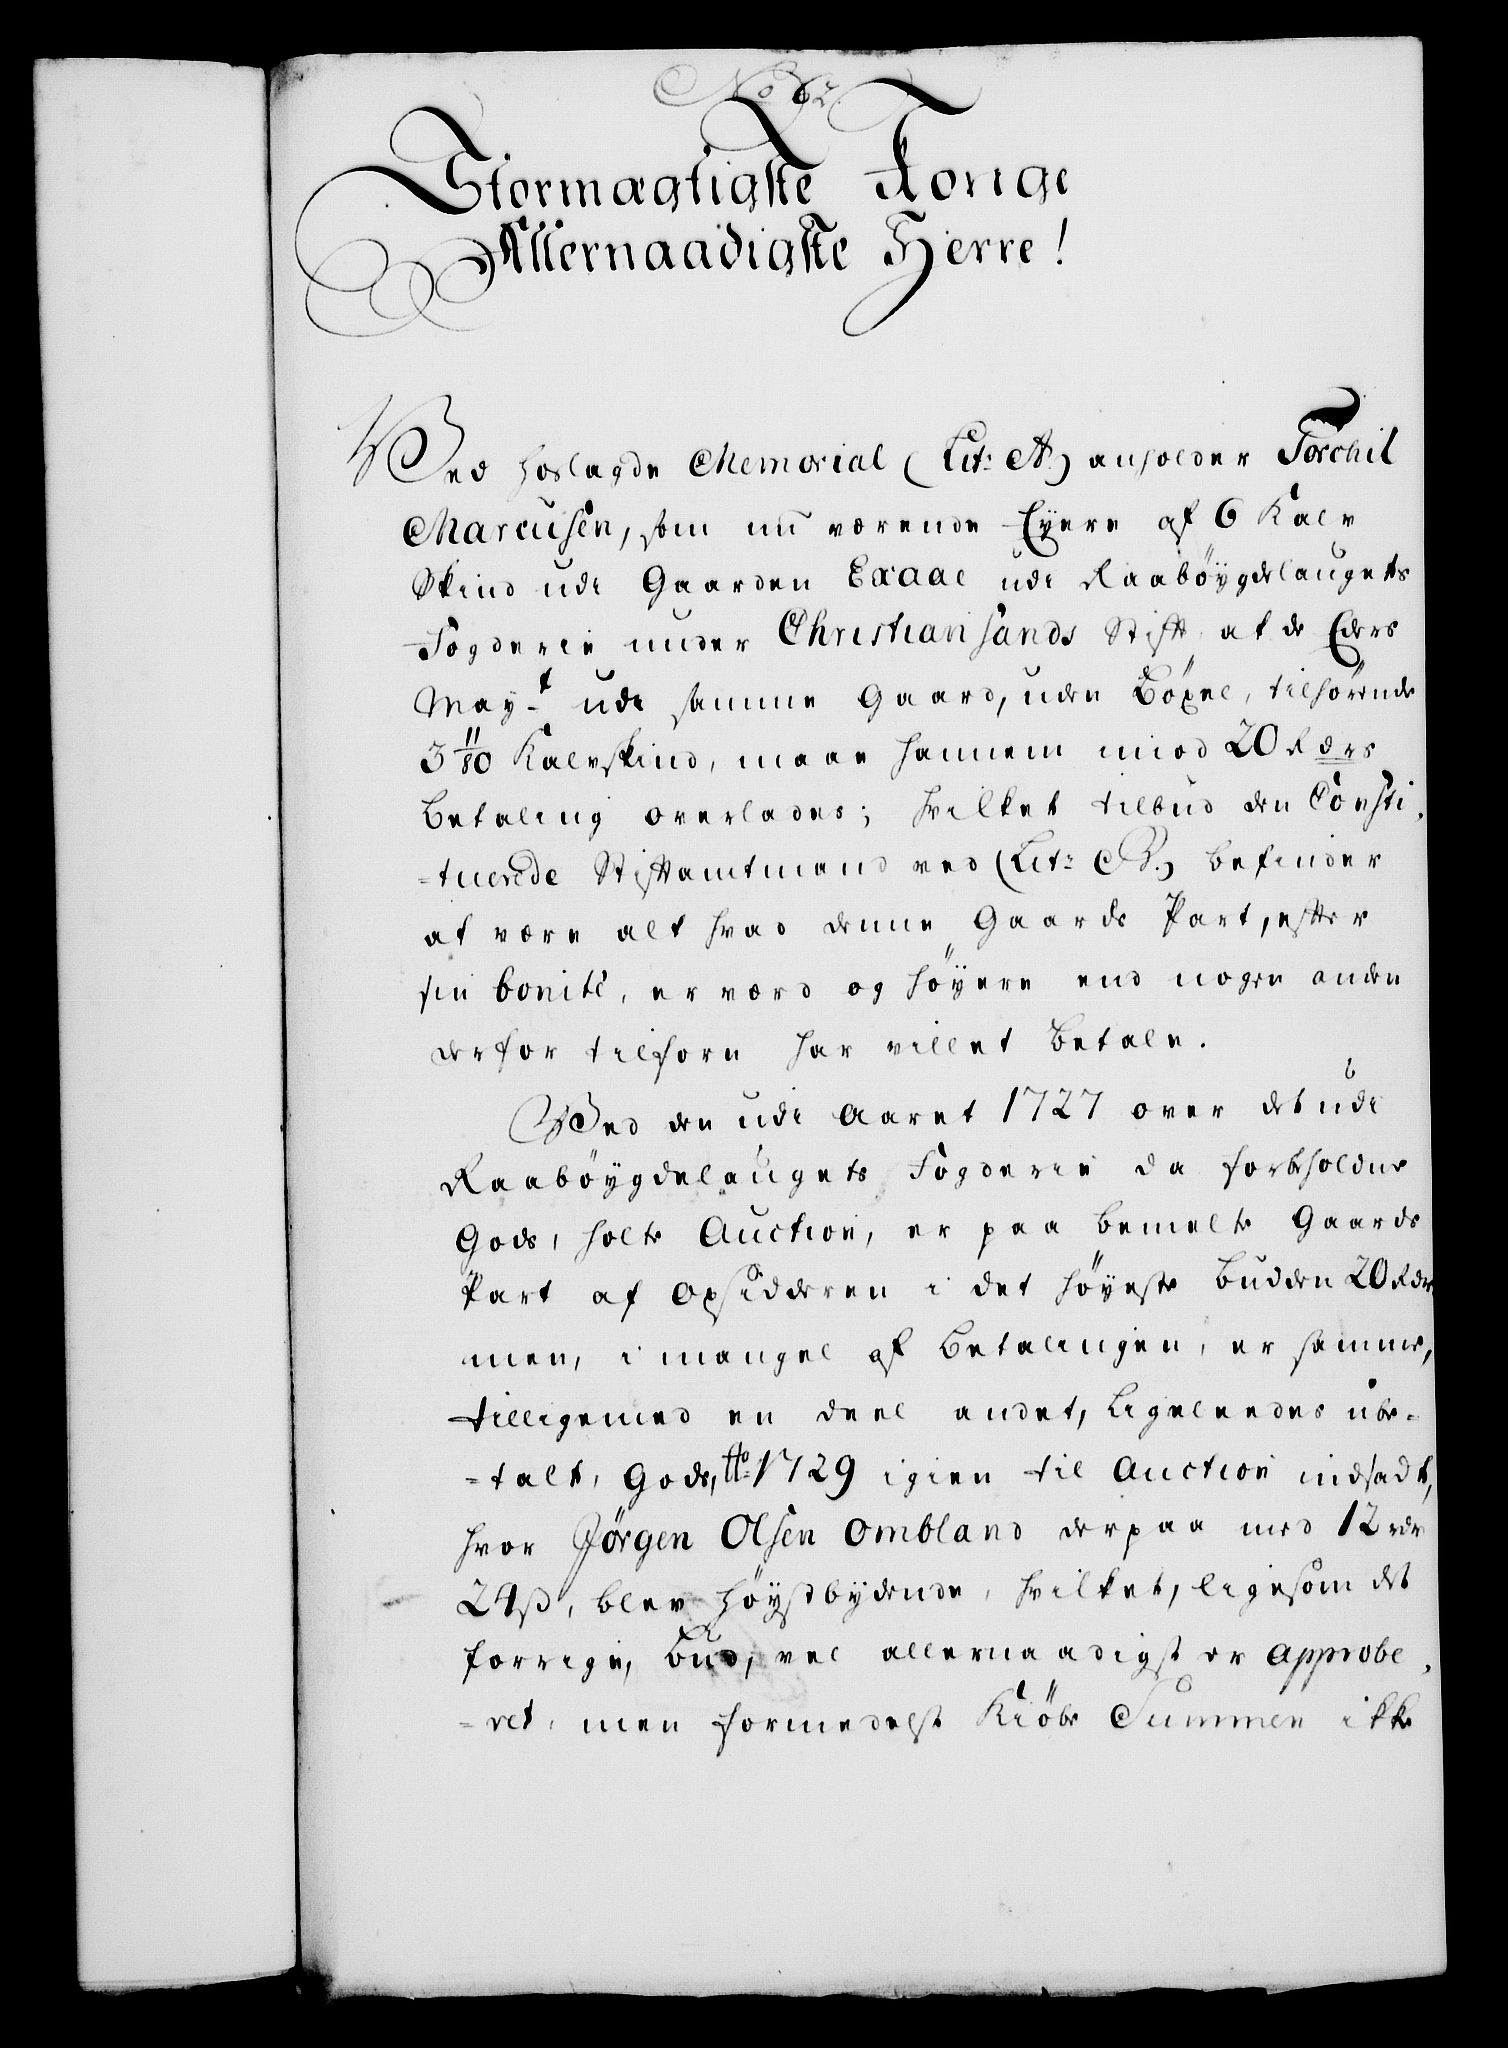 No 62
Stormægtigste Konge
Allernaadigste Herre!
Ved hoslagde Memorial (Lit: A.) anholder Torchil
Marcusen, som nu værende Eyere af 6 Kalv
Skind udi Gaarden Exaae udi Raabøygdelaugets
Fogderie under Christiansands Stift, at de Eders
May.t udi samme Gaard, uden Böxel, tilhörende
3 11/80 Kalvskind, maae hannem imod 20 Rdrs
Betaling overlades; hvilket tilbud den Consti-
-tuerede Stiftamtmand ved (Lit: B.) befinder
at være alt hvad denne Gaarde Part, efter
sin bonité, er værd og höyere end nogen anden
derfor tilforn har villet betale.
Ved den udi Aaret 1727 over det udi
Raaböygdelaugets Fogderie da forbeholdne
Gods, holte Auction, er paa bemelte Gaarde
Part af Opsidderen i det höyeste budden 20 Rdr
men, i mangel af Betalingen, er samme,
tilligemed en deel andet, ligeleedes ube-
-talt, Gods, Ao 1729 igien til Auction indsadt,
hvor Jörgen Olsen Ombland derpaa med 12 rdr
24 ß, blev höystbydende, hvilket, ligesom det
forrige, bud, vel allernaadigst er approbe-
-ret, men formedelst Kiöbe Summen ikke